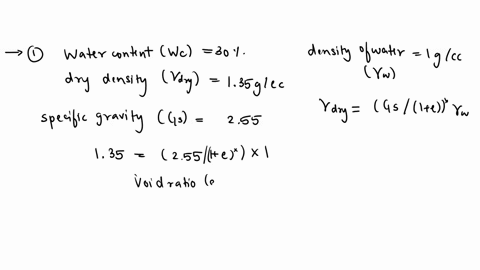 → ① Water content (Wc) = 30%.
dry density (γdry) = 1.35g/cc
specific gravity (Gs) = 2.55
1.35 = (2.55/(1+e)^x) × 1
Void ratio (e
density of water = 1 g/cc
(γw)
γdry = (Gs/(1+e))^x γw